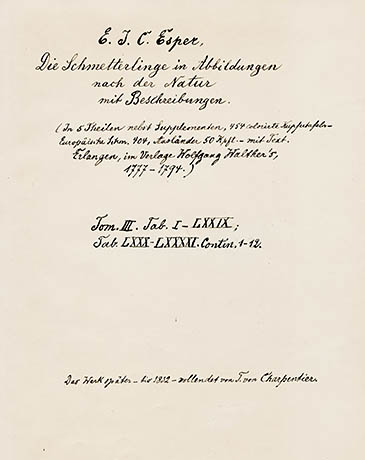 E. J. C. Esper,
Die Schmetterlinge in Abbildungen
nach der Natur
mit Beschreibungen.
(In 5 Theilen nebst Supplementen, 454 colorirte Kupfertafeln-
Europäische Schm. 404, Ausländer 50 Kpfl. - mit Text.
Erlangen, im Verlage Wolfgang Walther's,
1777-1794.)
Tom. III. Tab. I - LXXIX;
Tab. LXXX-LXXXXI. Contin. 1-12.
Das Werk später - bis - vollendet von T. von Charpentier.